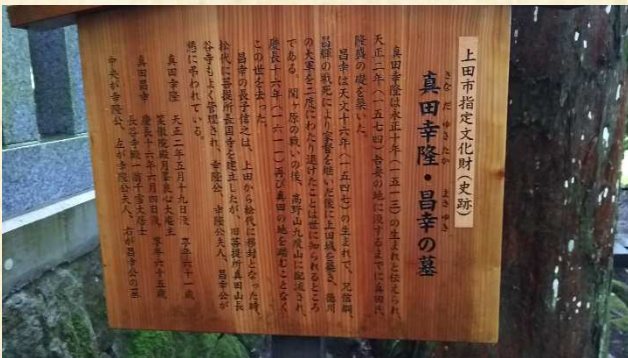 上田市指定文化財(史跡)
さな だ ゆきたか まさ ゆき
真田幸隆・昌幸の墓
真田幸隆は永正十年(一五一三)の生まれと伝えられ、
天正二年(一五七四)吾妻の地に没するまでに真田氏
隆盛の礎を築いた。
昌幸は天文十六年(一五四七)の生まれで、兄信綱、
昌輝の戦死により家督を継いだ後に上田城を築き、徳川
の大軍を二度にわたり退けたことは世に知られるところ
である。関ヶ原の戦いの後、高野山九度山に配流され、
慶長十六年(一六一一)再び真田の地を踏むことなく
この世を去った。
昌幸の長子信之は、上田から松代に移封となった時、
松代に菩提所長国寺を建立したが、旧菩提所真田山長
谷寺もよく管理され、幸隆公、幸隆公夫人、昌幸公が
懇に弔われている。
真田幸隆 天正二年五月十九日没 享年六十一歳
笑傲院殿月峯良心大庵主
真田昌幸 慶長十六年六月四日没 享年六十五歳
長谷寺殿一翁千雪大居士
中央が幸隆公、左が幸隆公夫人、右が昌幸公の墓